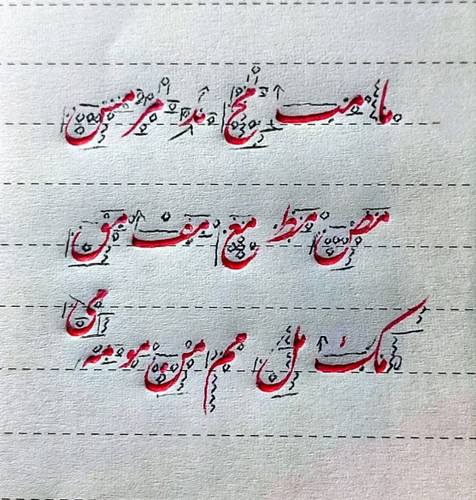 ما مب مح مد مر مس
مص مط مع مف مق
مک مل مم من مو مه می